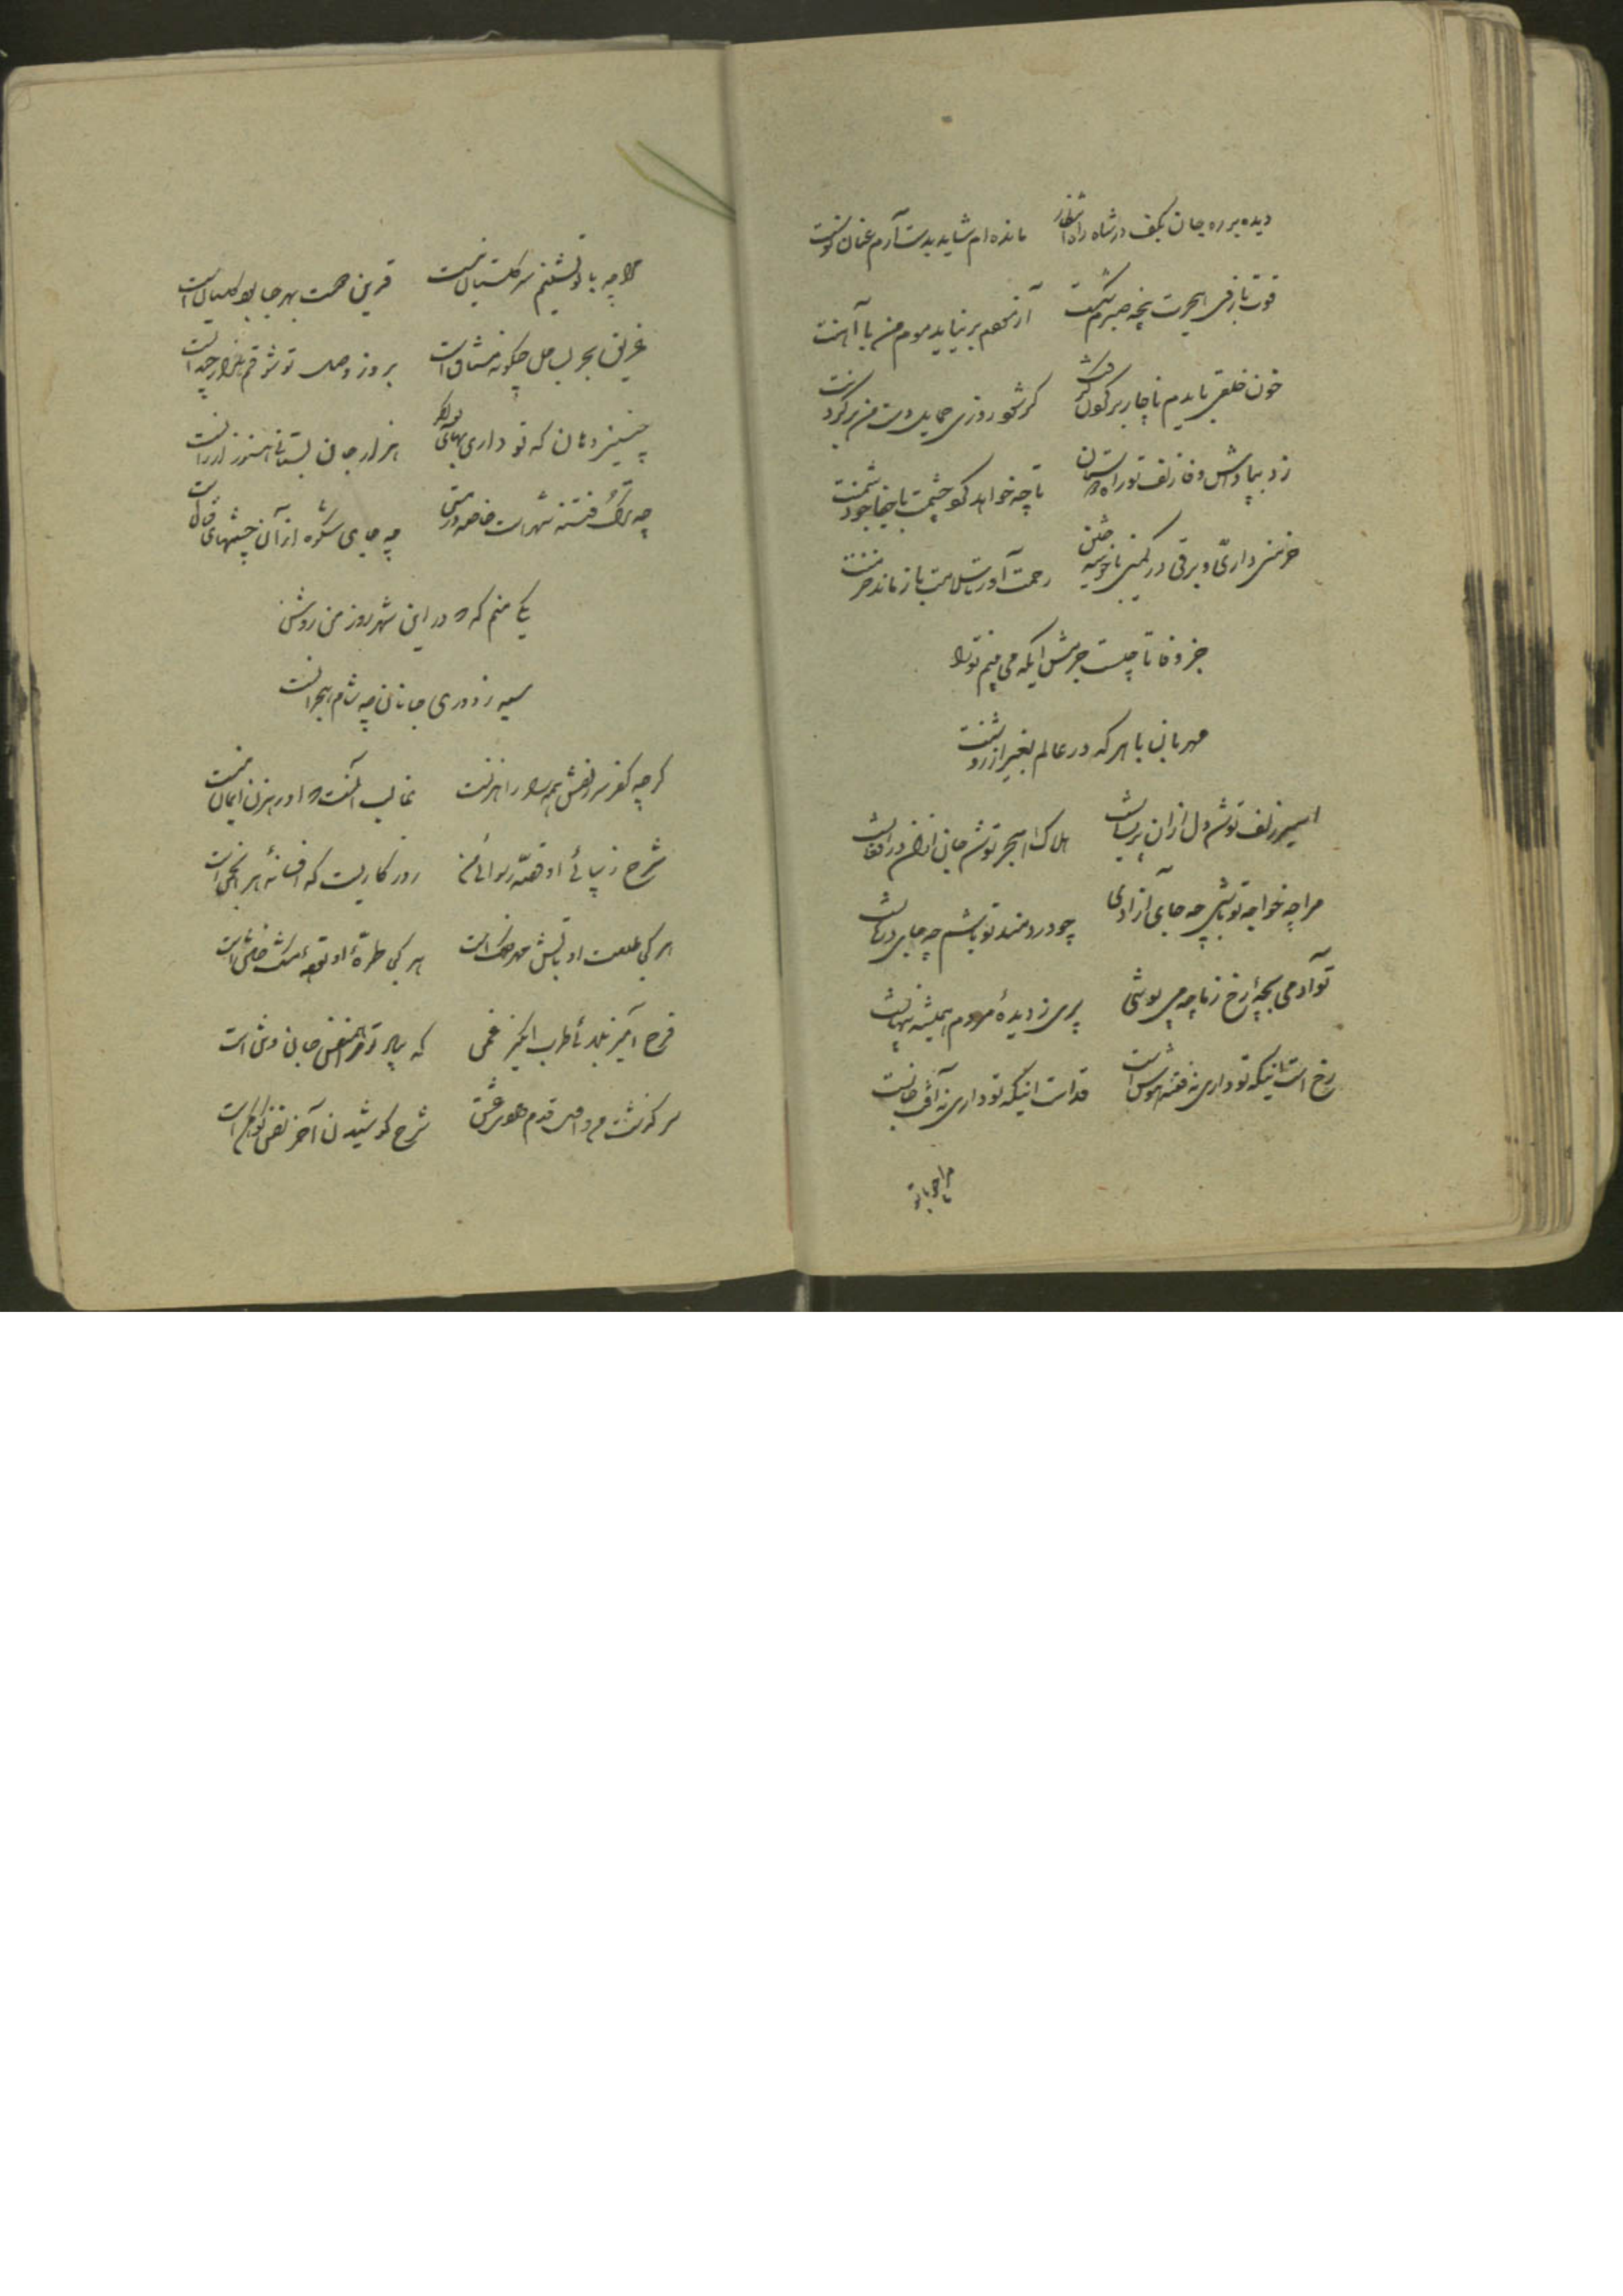 دیده بر ره جان بکف در شاه راه انتظار مانده ام شاید بدست آرم عنان توسنت
قوت بازوی هجرت پنجه صبرم شکست آزمودم برنیاید موم من با آهنت
خون خلقی بایدم ناچار بر گردن گرفت گر شود روزی حمایل دست من بر گردنت
زد بپاداش وفا زلف تو راه تا چه خواهد کرد چشمت با جفا جو دشمنت
خرمنی داری و برقی در کمین با خوشه چین رحمت آور تا سلامت باز ماند خرمنت
جز وفا تا چیست جرمش اینکه می بینم ترا
مهربان با هر که در عالم بغیر از
اسیر زلف تو شد دل از آن پریشانست هلاک هجر تو شد جان از آن در افغانست
مرا چه خواجه تو باشی چه جای آزادی چو دردمند تو باشم چه جای درمانست
تو آدمی بچه رخ ز ما چه می پوشی پری ز دیده مردم همیشه پنهانست
رخ است اینکه تو داری نه فتنه هوش است قد است اینکه تو داری نه آفت جانست
مرا چه با تو
مرا چه با تو نشینم سر گلستان نیست قرین همت بهر جا بود گلستان است
غریق بحر بساحل چگونه مشتاق است بروز وصل تو شوقم هزار چندانست
چنین دهان که تو داری بهای بوسه اگر هزار جان بستانی هنوز ارزانست
چه ترک فتنه شهر است خاصه در مستی چه جای شکوه از آن چشمهای فتانست
یکی منم که در این شهر روز من روشن
سیه ز دوری جانان چه شام هجرانست
گرچه کفر سر زلفش همه را راهزنست غالب آنست که او رهزن ایمان منست
شرح زیبائی او قصه رسوائی من روزگاریست که افسانه هر انجمن است
هر کجا طلعت او تابش است هر کجا طره او نفحه مشک ختن است
فرح آمیز طرب انگیز غمی که
سر گذشت من و قدم عشق شرح کوشیدن آخر است